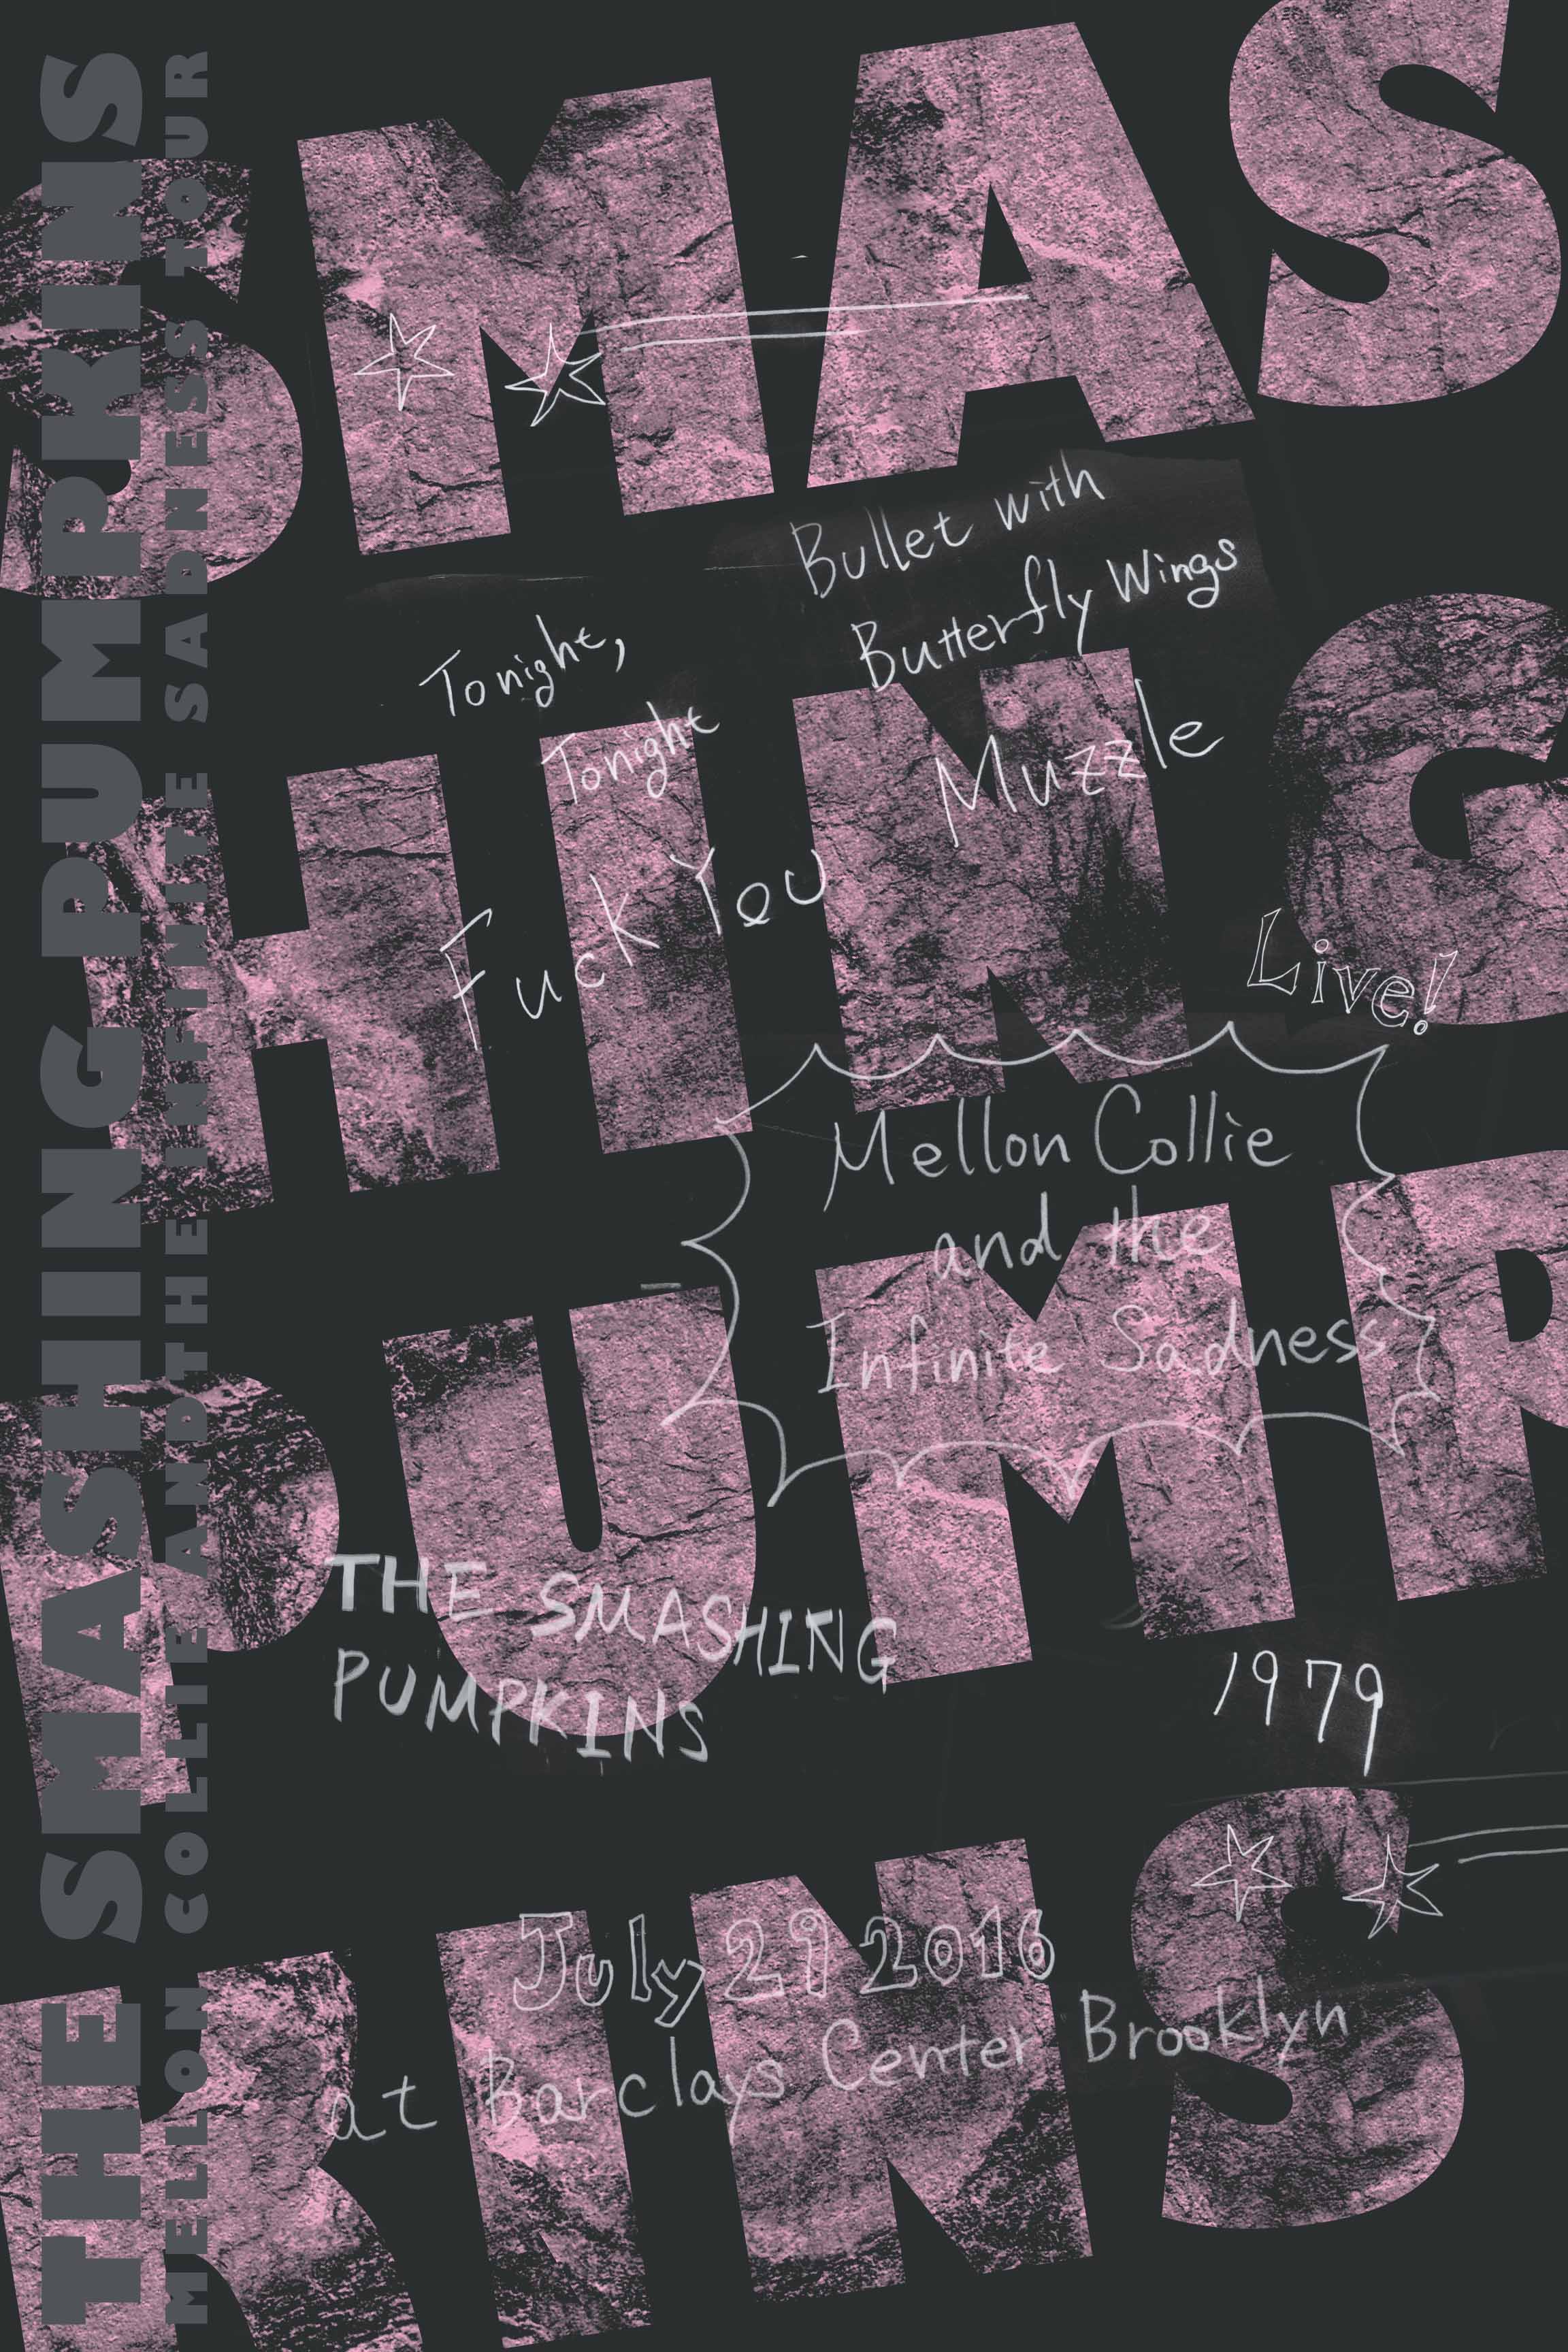 THE SMASHING PUMPKINS
MELLON COLLIE AND THE INFINITE SADNESS TOUR
SMAS
HING
PUMP
KINS
Bullet with
Butterfly Wings
Tonight,
Tonight
Muzzle
Fuck You
Live!
Mellon Collie
and the
Infinite Sadness
THE SMASHING
PUMPKINS
1979
July 29 2016
at Barclays Center Brooklyn